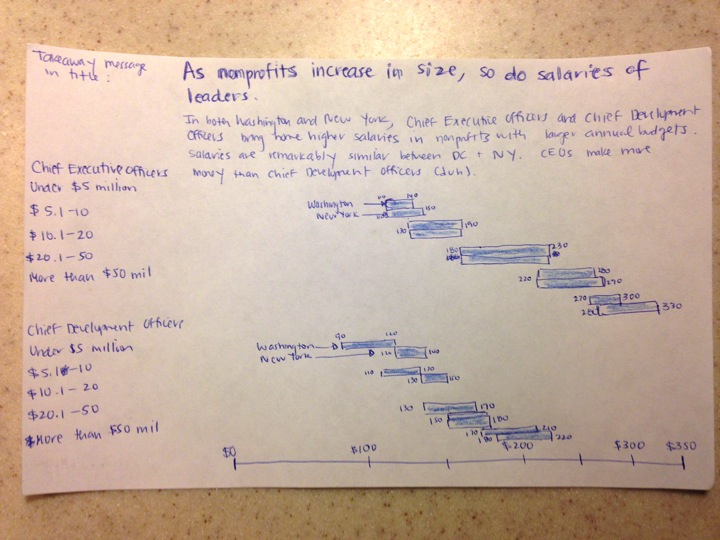 Takeaway message
in title:
As nonprofits increase in size, so do salaries of
leaders.
In both Washington and New York, Chief Executive Officers and Chief Development
Officers bring home higher salaries in nonprofits with larger annual budgets.
Salaries are remarkably similar between DC + NY. CEOs make more
money than Chief Development Officers (duh).
Chief Executive Officers
Under $5 million
$5.1-10
$10.1-20
$20.1-50
More than $50 mil
Washington
New York
140
150
130
190
180
230
220
270
270
300
330
Chief Development Officers
Under $5 million
$5.1-10
$10.1-20
$20.1-50
More than $50 mil
Washington
New York
90
120
120
140
110
130
130
150
130
170
150
180
170
210
180
220
$0
$100
$200
$300
$350